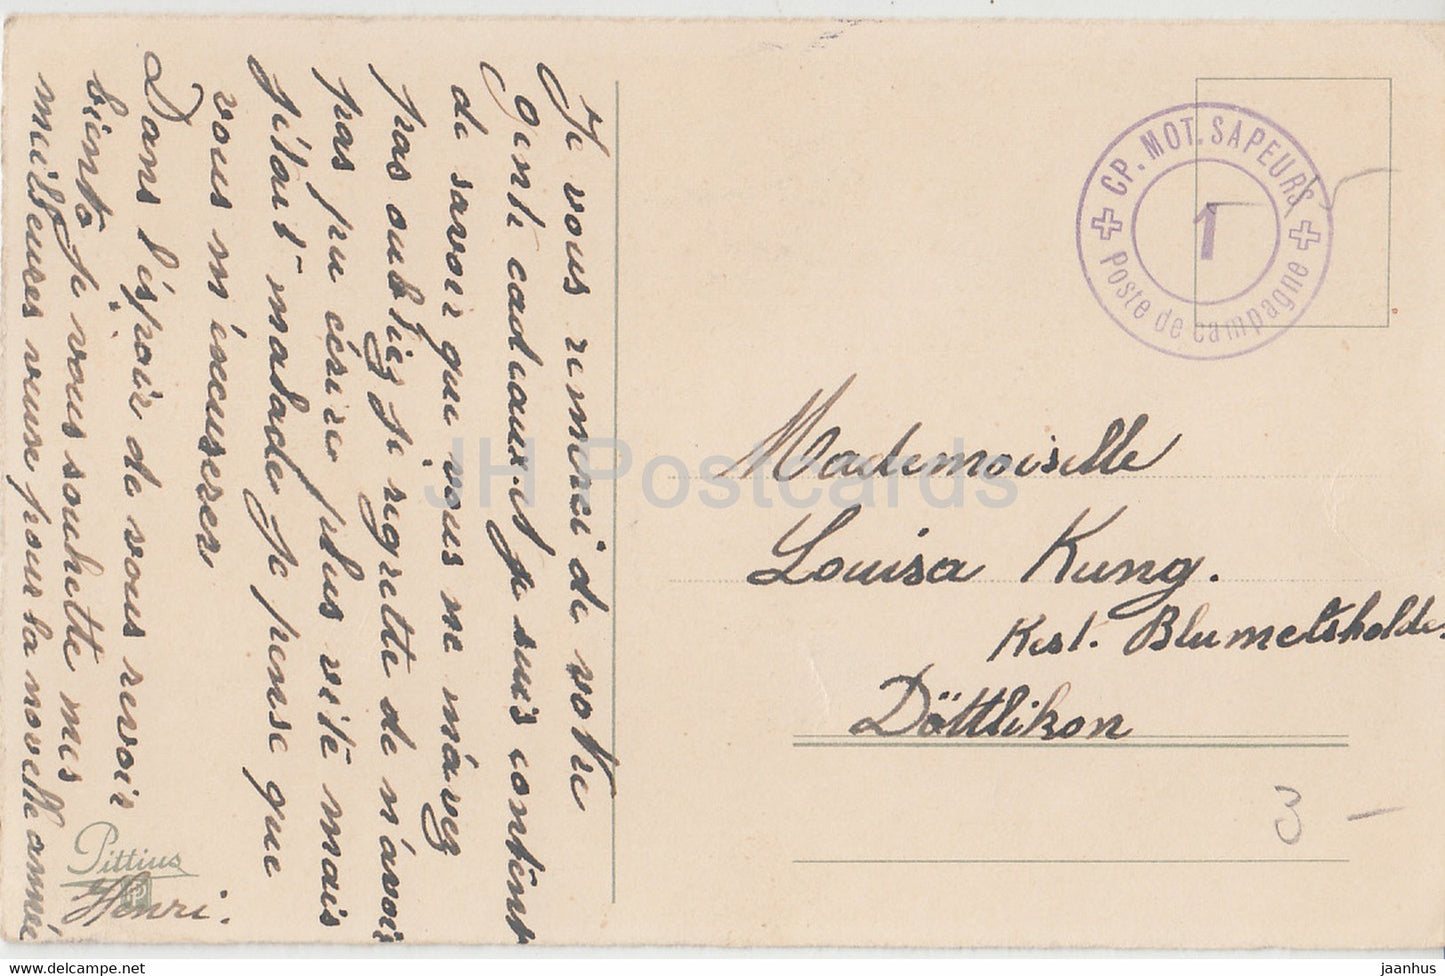 Je vous remerci de votre
genti cadeaux. et je suis contènt
de savoir que vous ne m'avez
pas oubliez je regrette de n'avoir
pas pu ésire plus vite mais
j'étais malade je pense que
vous m'éxcuserer,
Dans l'éspoir de vous revoir
bientô je vous souhette mes
meilseures veuse pour la novelle année
Henri.
Pittius
CP. MOT. SAPEURS
1
Poste de campagne
Mademoiselle
Louisa Kung.
Rest. Blumetshalde
Döttlikon
JH Postcards
https://www.delcampe.net
jaanhus